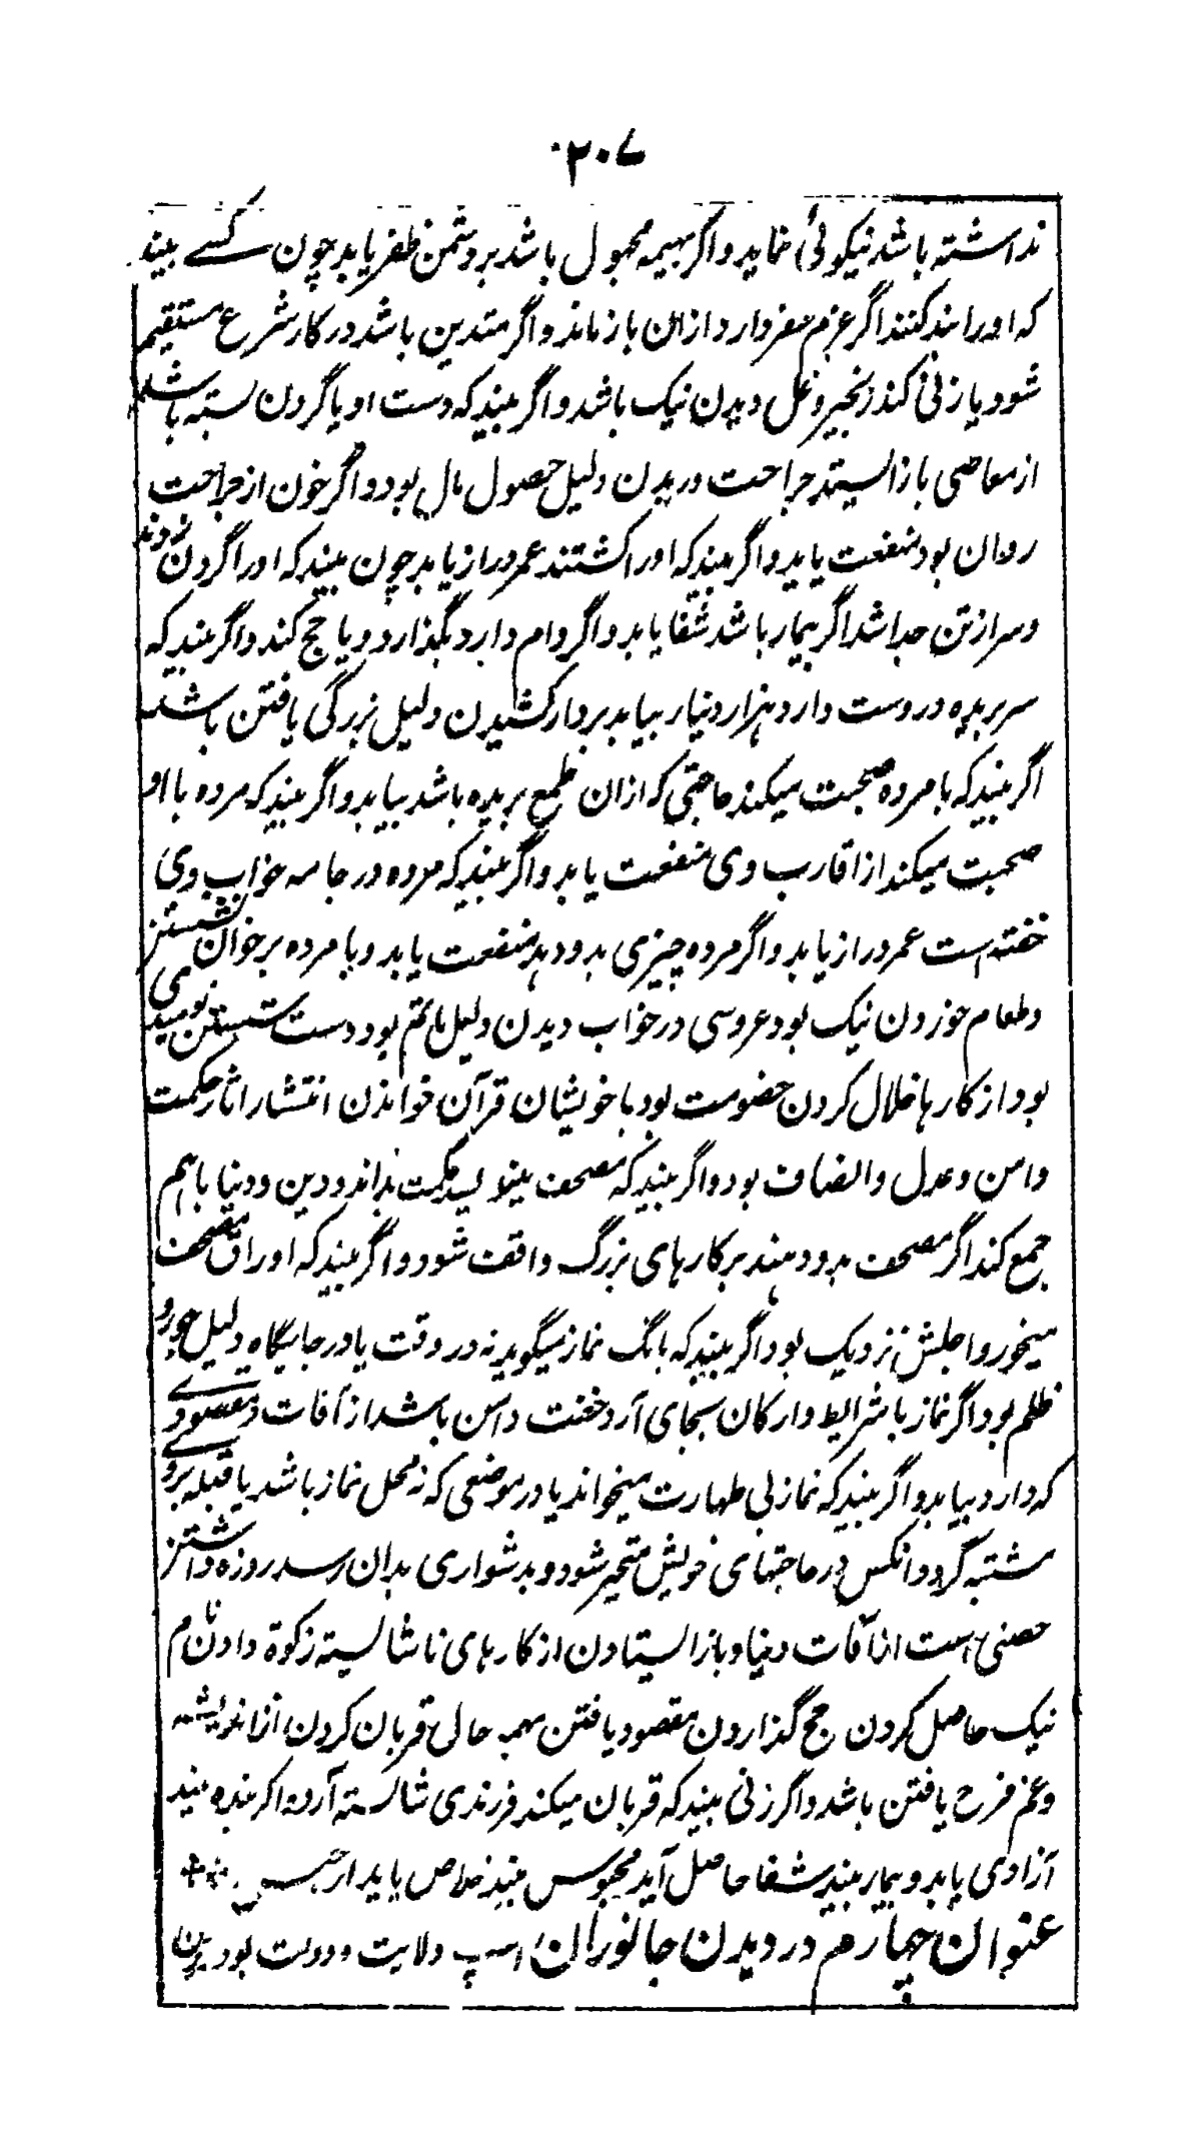 ۲۰۷
نداشته باشد نیکوئی نماید و اگر بهیمه مجهول باشد بر دشمن ظفر یابد چون کسے بیند
که او را بند کنند اگر عزم سفر دارد ازان باز ماند و اگر متدین باشد در کار شرع مستقیم
شود یا زنی کند زنجیر و غل دیدن نیک باشد و اگر بیند که دست او یا گردن بسته باشد
از معاصی باز ایستد جراحت دریدن دلیل حصول مال بود و اگر خون از جراحت
روان بود منفعت یابد و اگر بیند که او را کشتند عمر دراز یابد چون بیند که او را گردن زدند
و سر از تن جدا شد اگر بیمار باشد شفا یابد و اگر وام دارد بگذارد و یا حج کند و اگر بیند که
سر بریده در دست دارد هزار دینار بیابد بردار کشیدن دلیل بزرگی یافتن باشد
اگر بیند که با مرده صحبت میکند حاجتی که ازان طمع بریده باشد بیابد و اگر بیند که مرده با او
صحبت میکند از اقارب وی منفعت یابد و اگر بیند که مرده در جامه خواب وی
خفته است عمر دراز یابد و اگر مرده چیزی بدو دهد منفعت یابد و با مرده بر خوان نشستن
و طعام خوردن نیک بود عروسی در خواب دیدن دلیل ماتم بود دست شستن نومیدی
بود از کارها خلال کردن خصومت بود با خویشان قرآن خواندن انتشار آثار حکمت
و امن و عدل و انصاف بود و اگر بیند که مصحف مینویسد حکمت بداند و دین و دنیا باهم
جمع کند اگر مصحف بدو دهند بر کارهای بزرگ واقف شود و اگر بیند که اوراق مصحف
میخورد اجلش نزدیک بود اگر بیند که بانگ نماز میگوید نه در وقت یا در جایگاه دلیل جور و
ظلم بود اگر نماز با شرایط و ارکان بجای آرد خفت و امن باشد از آفات و مقصودے
که دارد بیابد و اگر بیند که نماز بی طهارت میخواند یا در موضعی که نه محل نماز باشد یا قبله بروے
مشتبه گردد آنکس در حاجتهای خویش متحیر شود و بدشواری بدان رسد روزه داشتن
حصنی است از آفات دنیا و باز ایستادن از کارهای ناشایسته زکوة دادن نام
نیک حاصل کردن حج گذاردن مقصود یافتن بهمه حالی قربان کردن از اندیشه
و غم فرح یافتن باشد و اگر زنی بیند که قربان میکند فرزندی شایسته آرد اگر بنده بیند
آزادی یابد و بیمار بیند شفا حاصل آید محبوس بیند خلاص یابد از حبس
عنوان چهارم در دیدن جانوران اسپ ولایت و دولت بود بدین